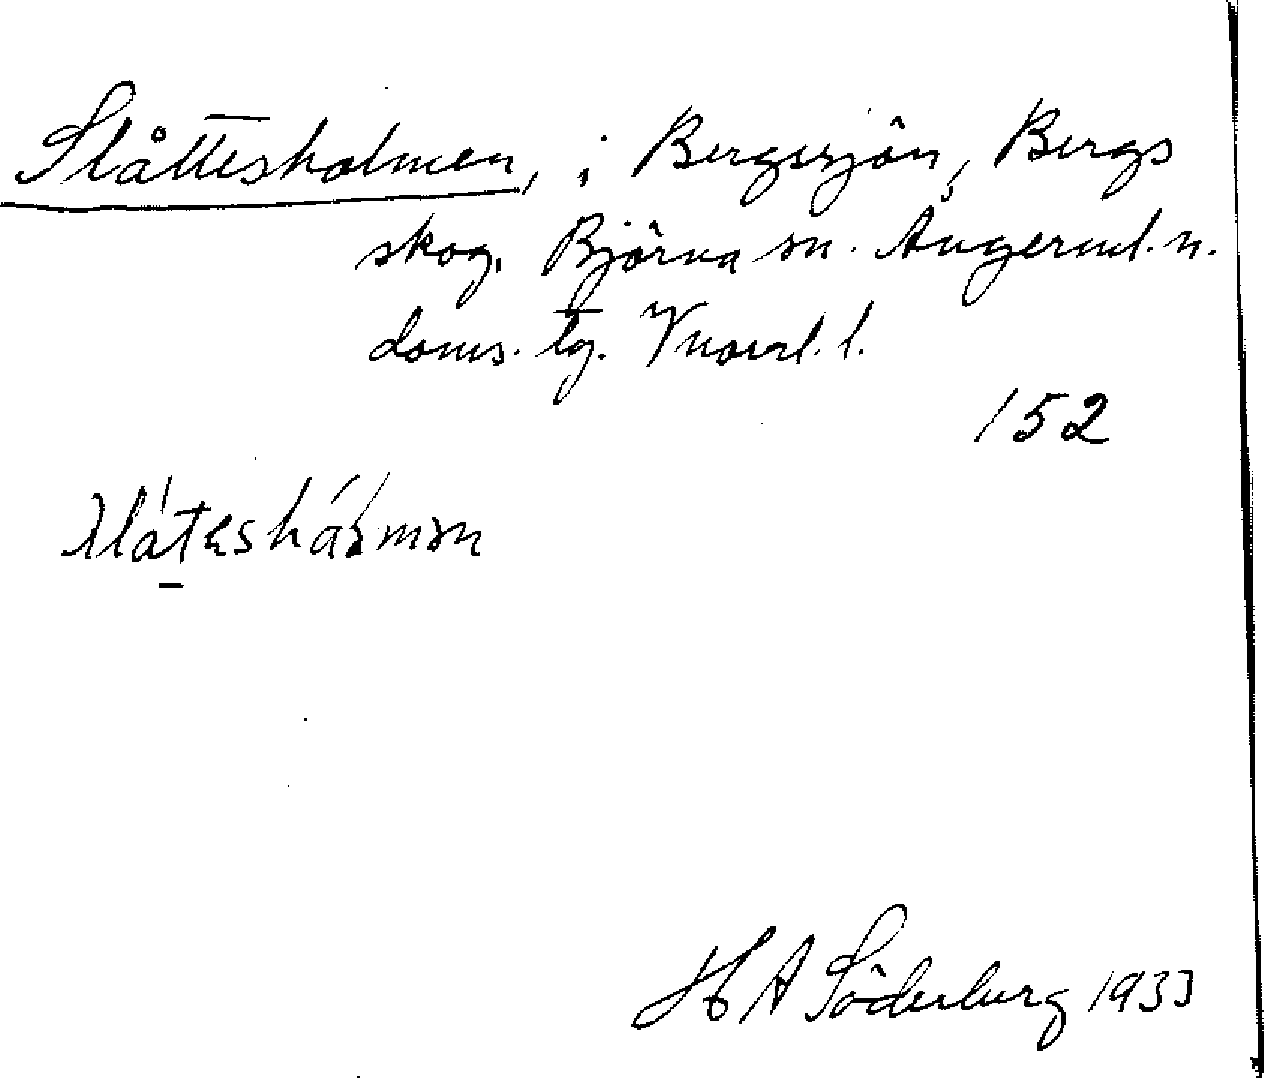 Slåttesholmen, i Bergsjön, Bergs
skog, Björna sn. Ångerml. n.
doms. lg. Vnorrl. l.
152
H A Söderberg 1933